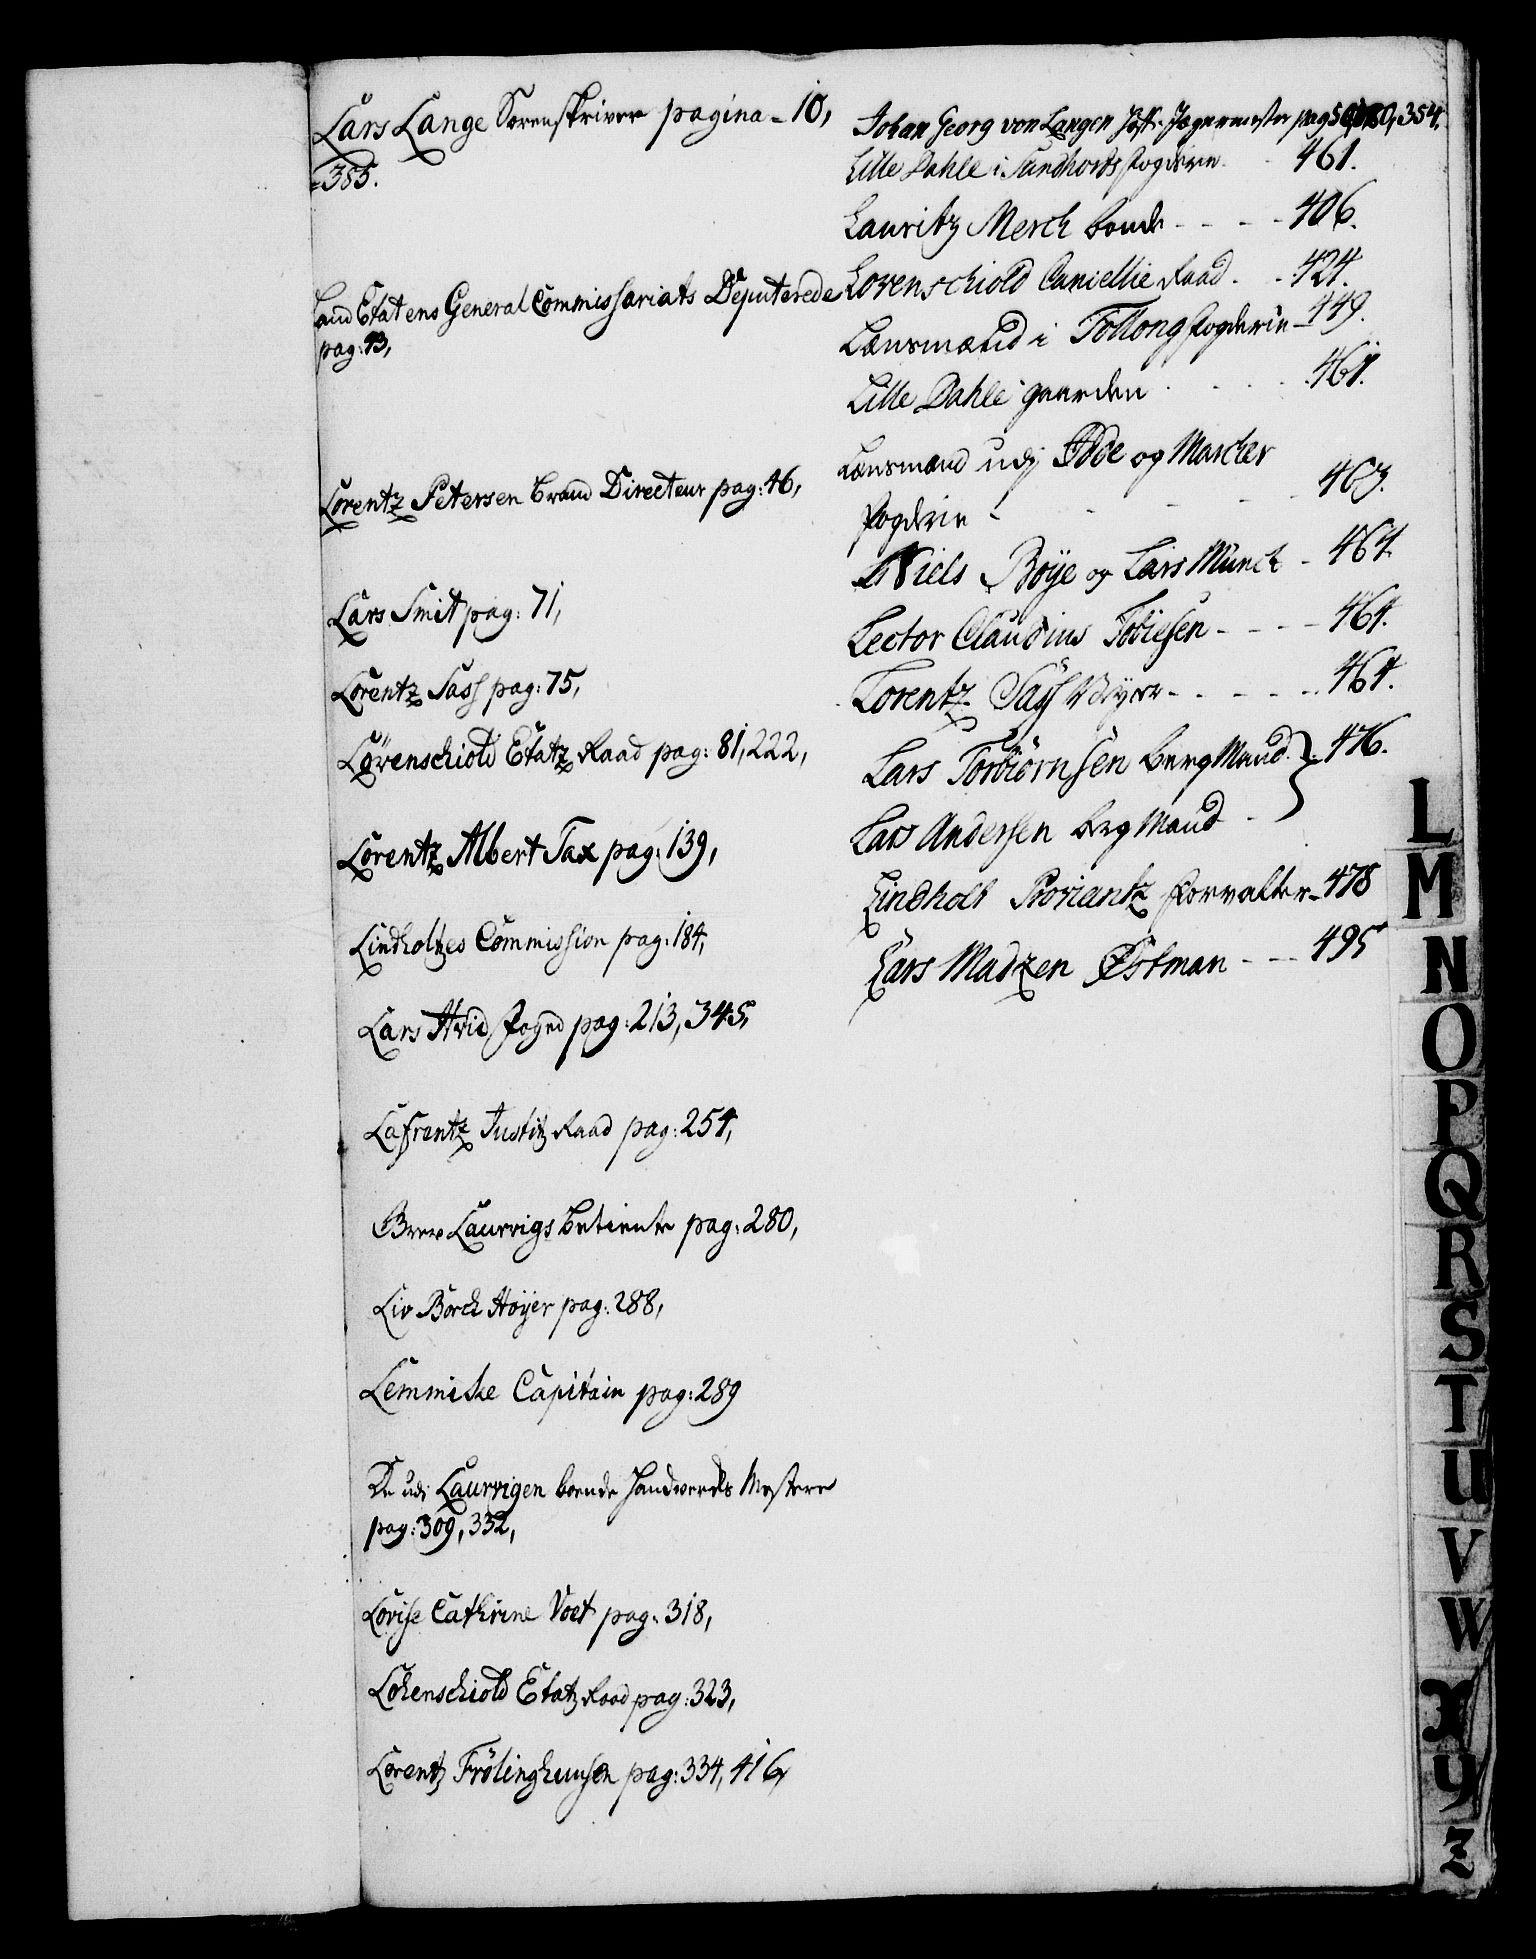 Lars Lange Sorenskriver pagina - 10,
385.
Land Etatens General Commissariats Deputerede
pag: 43,
Lorentz Petersen brand Directeur pag: 46,
Lars Smit pag: 71,
Lorentz Sass pag: 75,
Lövenschiold Etatz Raad pag: 81, 222,
Lorentz Albert Fax pag: 139,
Lindholtzes Commission pag: 184,
Lars Hvid Foged pag: 213, 345,
Lafrentz Justitz Raad pag: 254,
Grev Laurvigs betiente pag: 280,
Liv Borch Höyer pag: 288,
Lemmiche Capitain pag: 289
De udi Laurvigen boende Handwercks Mestere
pag: 309, 332,
Lovise Cathrine Voet pag: 318,
Lövenschiold Etatz Raad pag: 323,
Lorentz Frölinghunsen pag: 334, 416,
Johan Georg von Langen Hoff-Jægermester pag 354.
Lille Dahle i Sundhords fogderie - 461.
Lauritz Merch bonde - - - - 406.
Lovenschiold Cancellie Raad - - 424.
Lænsmænd i Follong fogderie - 449.
Lille Dahle gaarden - - - - 461.
Lænsmænd udj Idde og Marcker
fogderie - - - - 463.
Niels Böye og Lars Munch - 464.
Lector Claudius Tobiesen - - - - 464.
Lorentz Says - - - - - 464.
Lars Torbiörnsen berg Mand } 476.
Lars Andersen berg Mand -
Lindholt Proviantz forvalter - 478
Lars Madzen Östman - - - 495
L
M
N
O
P
Q
R
S
T
U
V
W
X
Y
Z